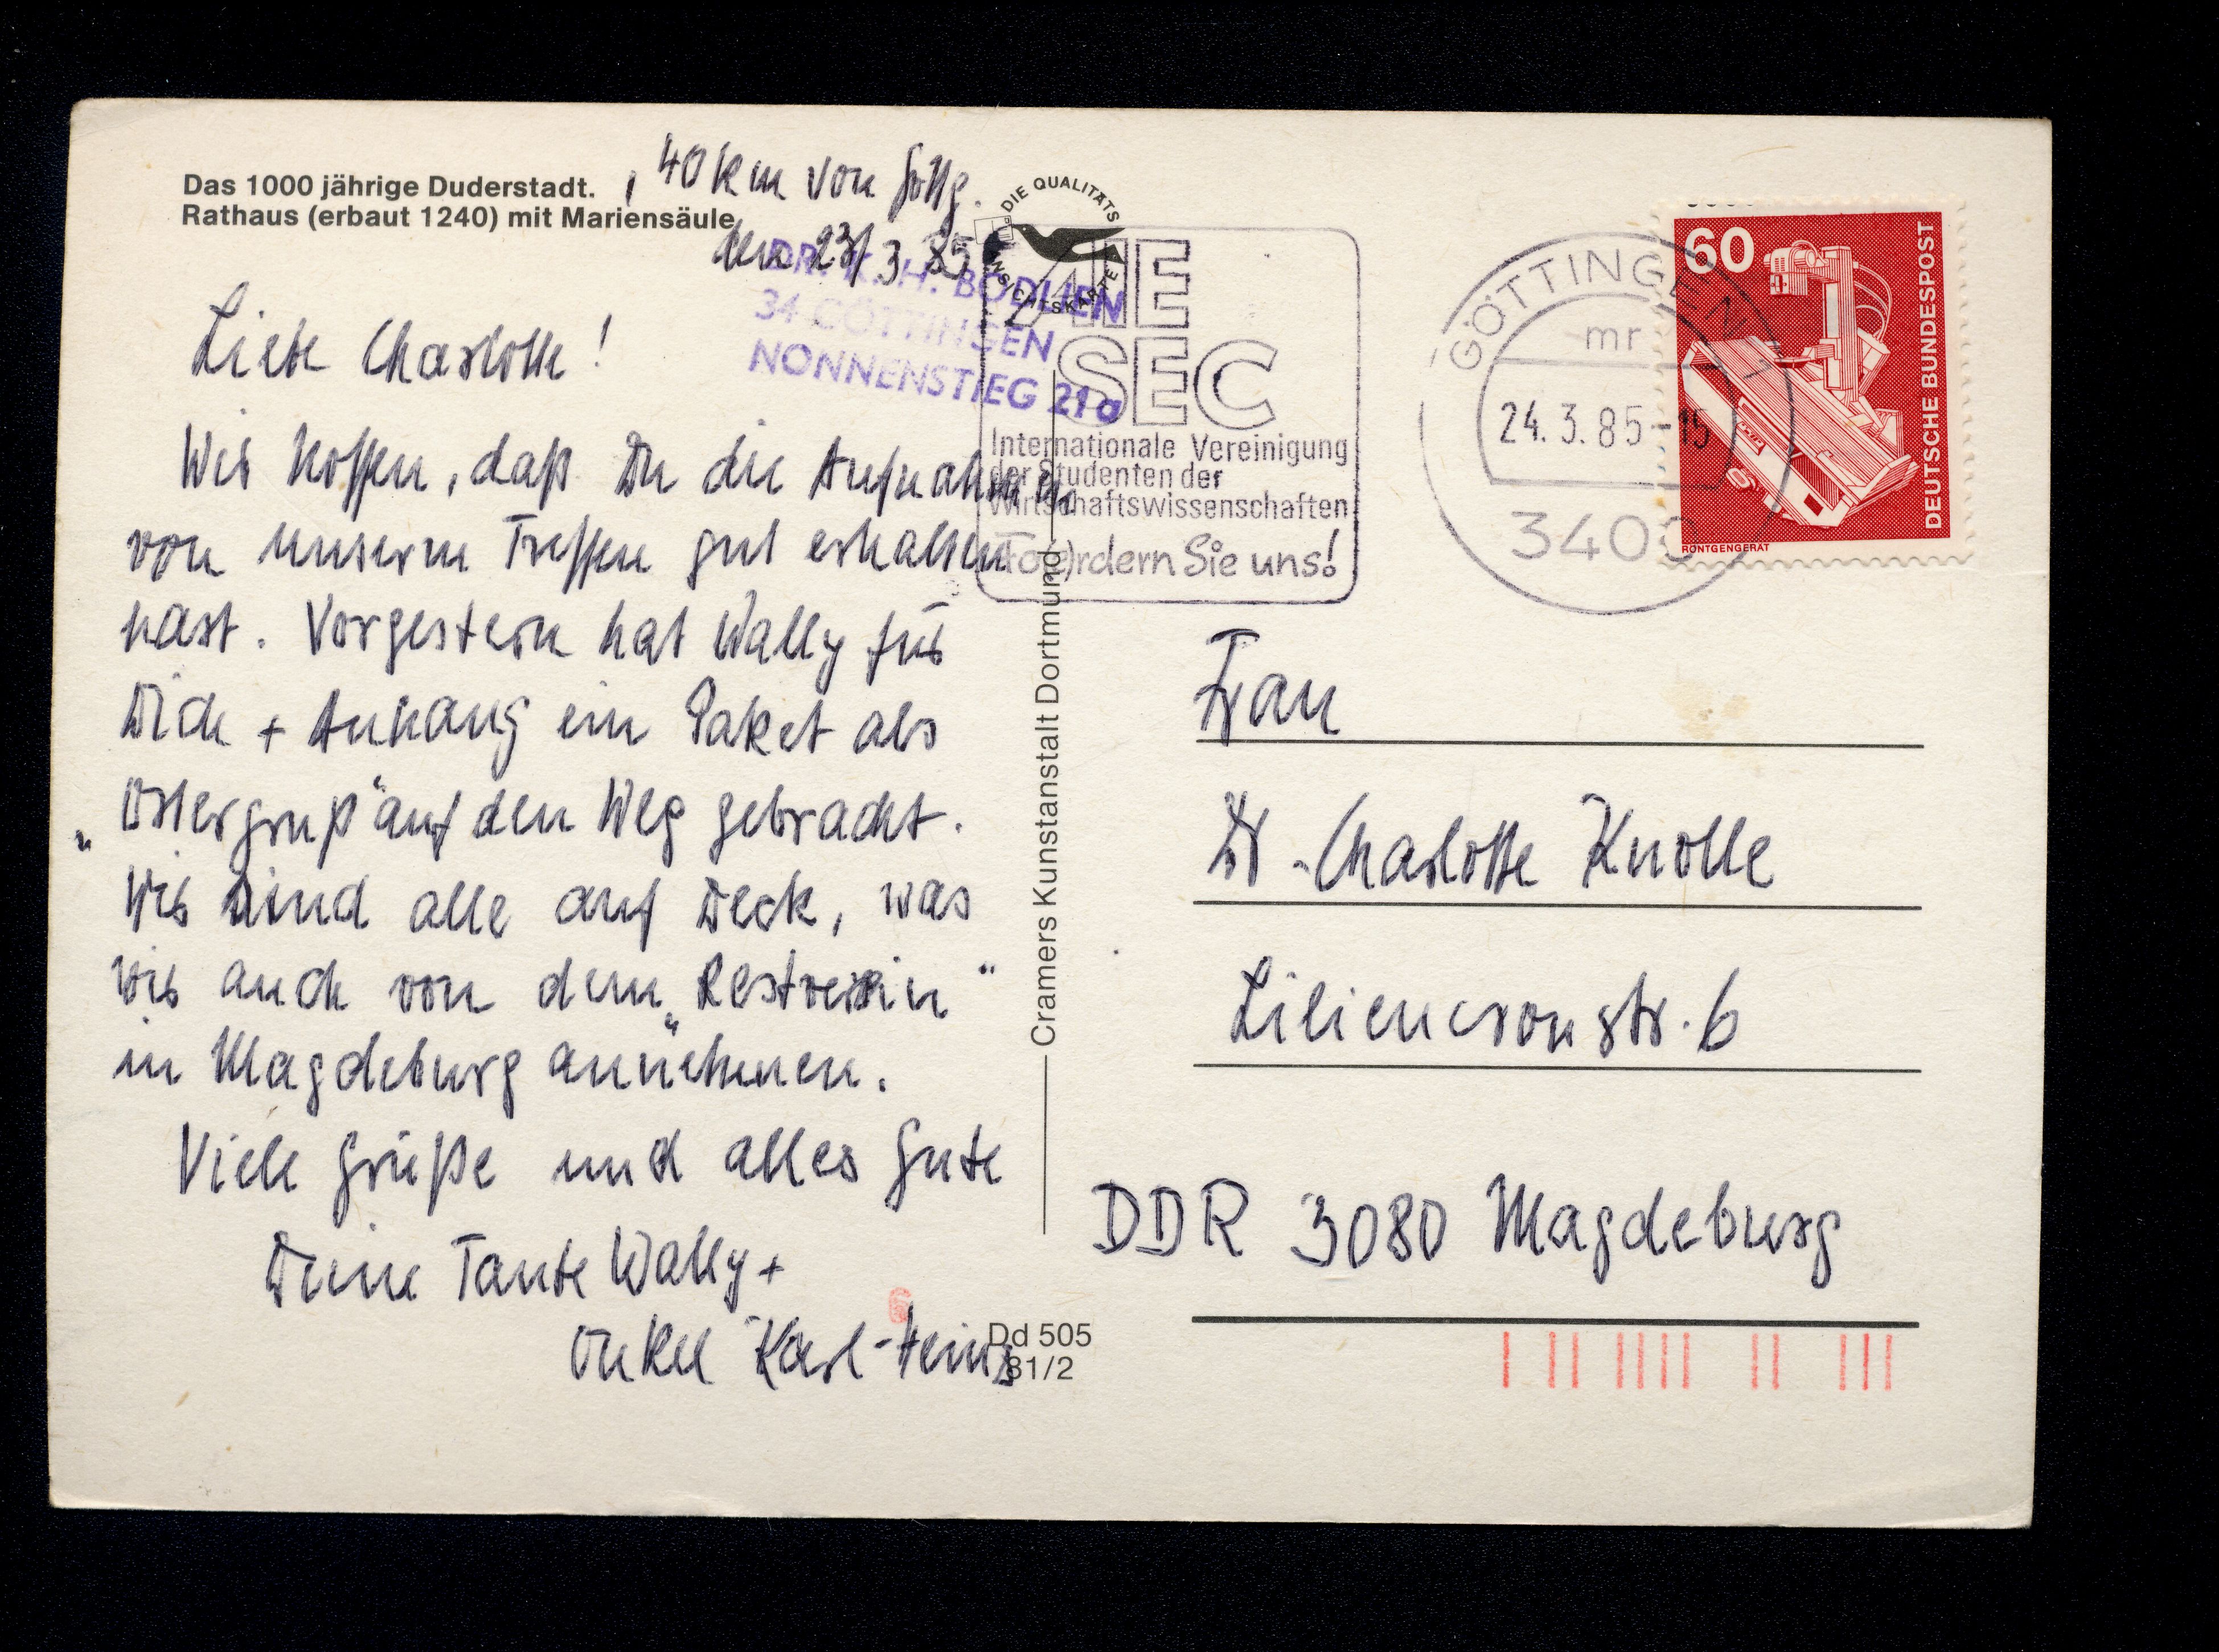 Das 1000 jährige Duderstadt. , 40 km von Göttg.
Rathaus (erbaut 1240) mit Mariensäule
den 23/3 85
DR. K. H. BODLIEN
34 GÖTTINGEN
NONNENSTIEG 21a
Liebe Charlotte!
Wir hoffen, daß Du die Aufnahmen
von unserm Treffen gut erhalten
hast. Vorgestern hat Wally für
Dich + Anhang ein Paket als
„Ostergruß“ auf den Weg gebracht.
Wir sind alle auf Deck, was
wir auch von dem „Restverein“
in Magdeburg annehmen.
Viele Grüße und alles Gute
Deine Tante Wally +
Onkel Karl-Heinz
DIE QUALITÄTS
ANSICHTSKARTE
Cramers Kunstanstalt Dortmund
Dd 505
81/2
AIE
SEC
Internationale Vereinigung
der Studenten der
Wirtschaftswissenschaften
Fo(e)rdern Sie uns!
GÖTTINGEN 1
mr
24.3.85-15
3400
60
DEUTSCHE BUNDESPOST
RÖNTGENGERÄT
Frau
Dr. Charlotte Knolle
Liliencronstr. 6
DDR 3080 Magdeburg